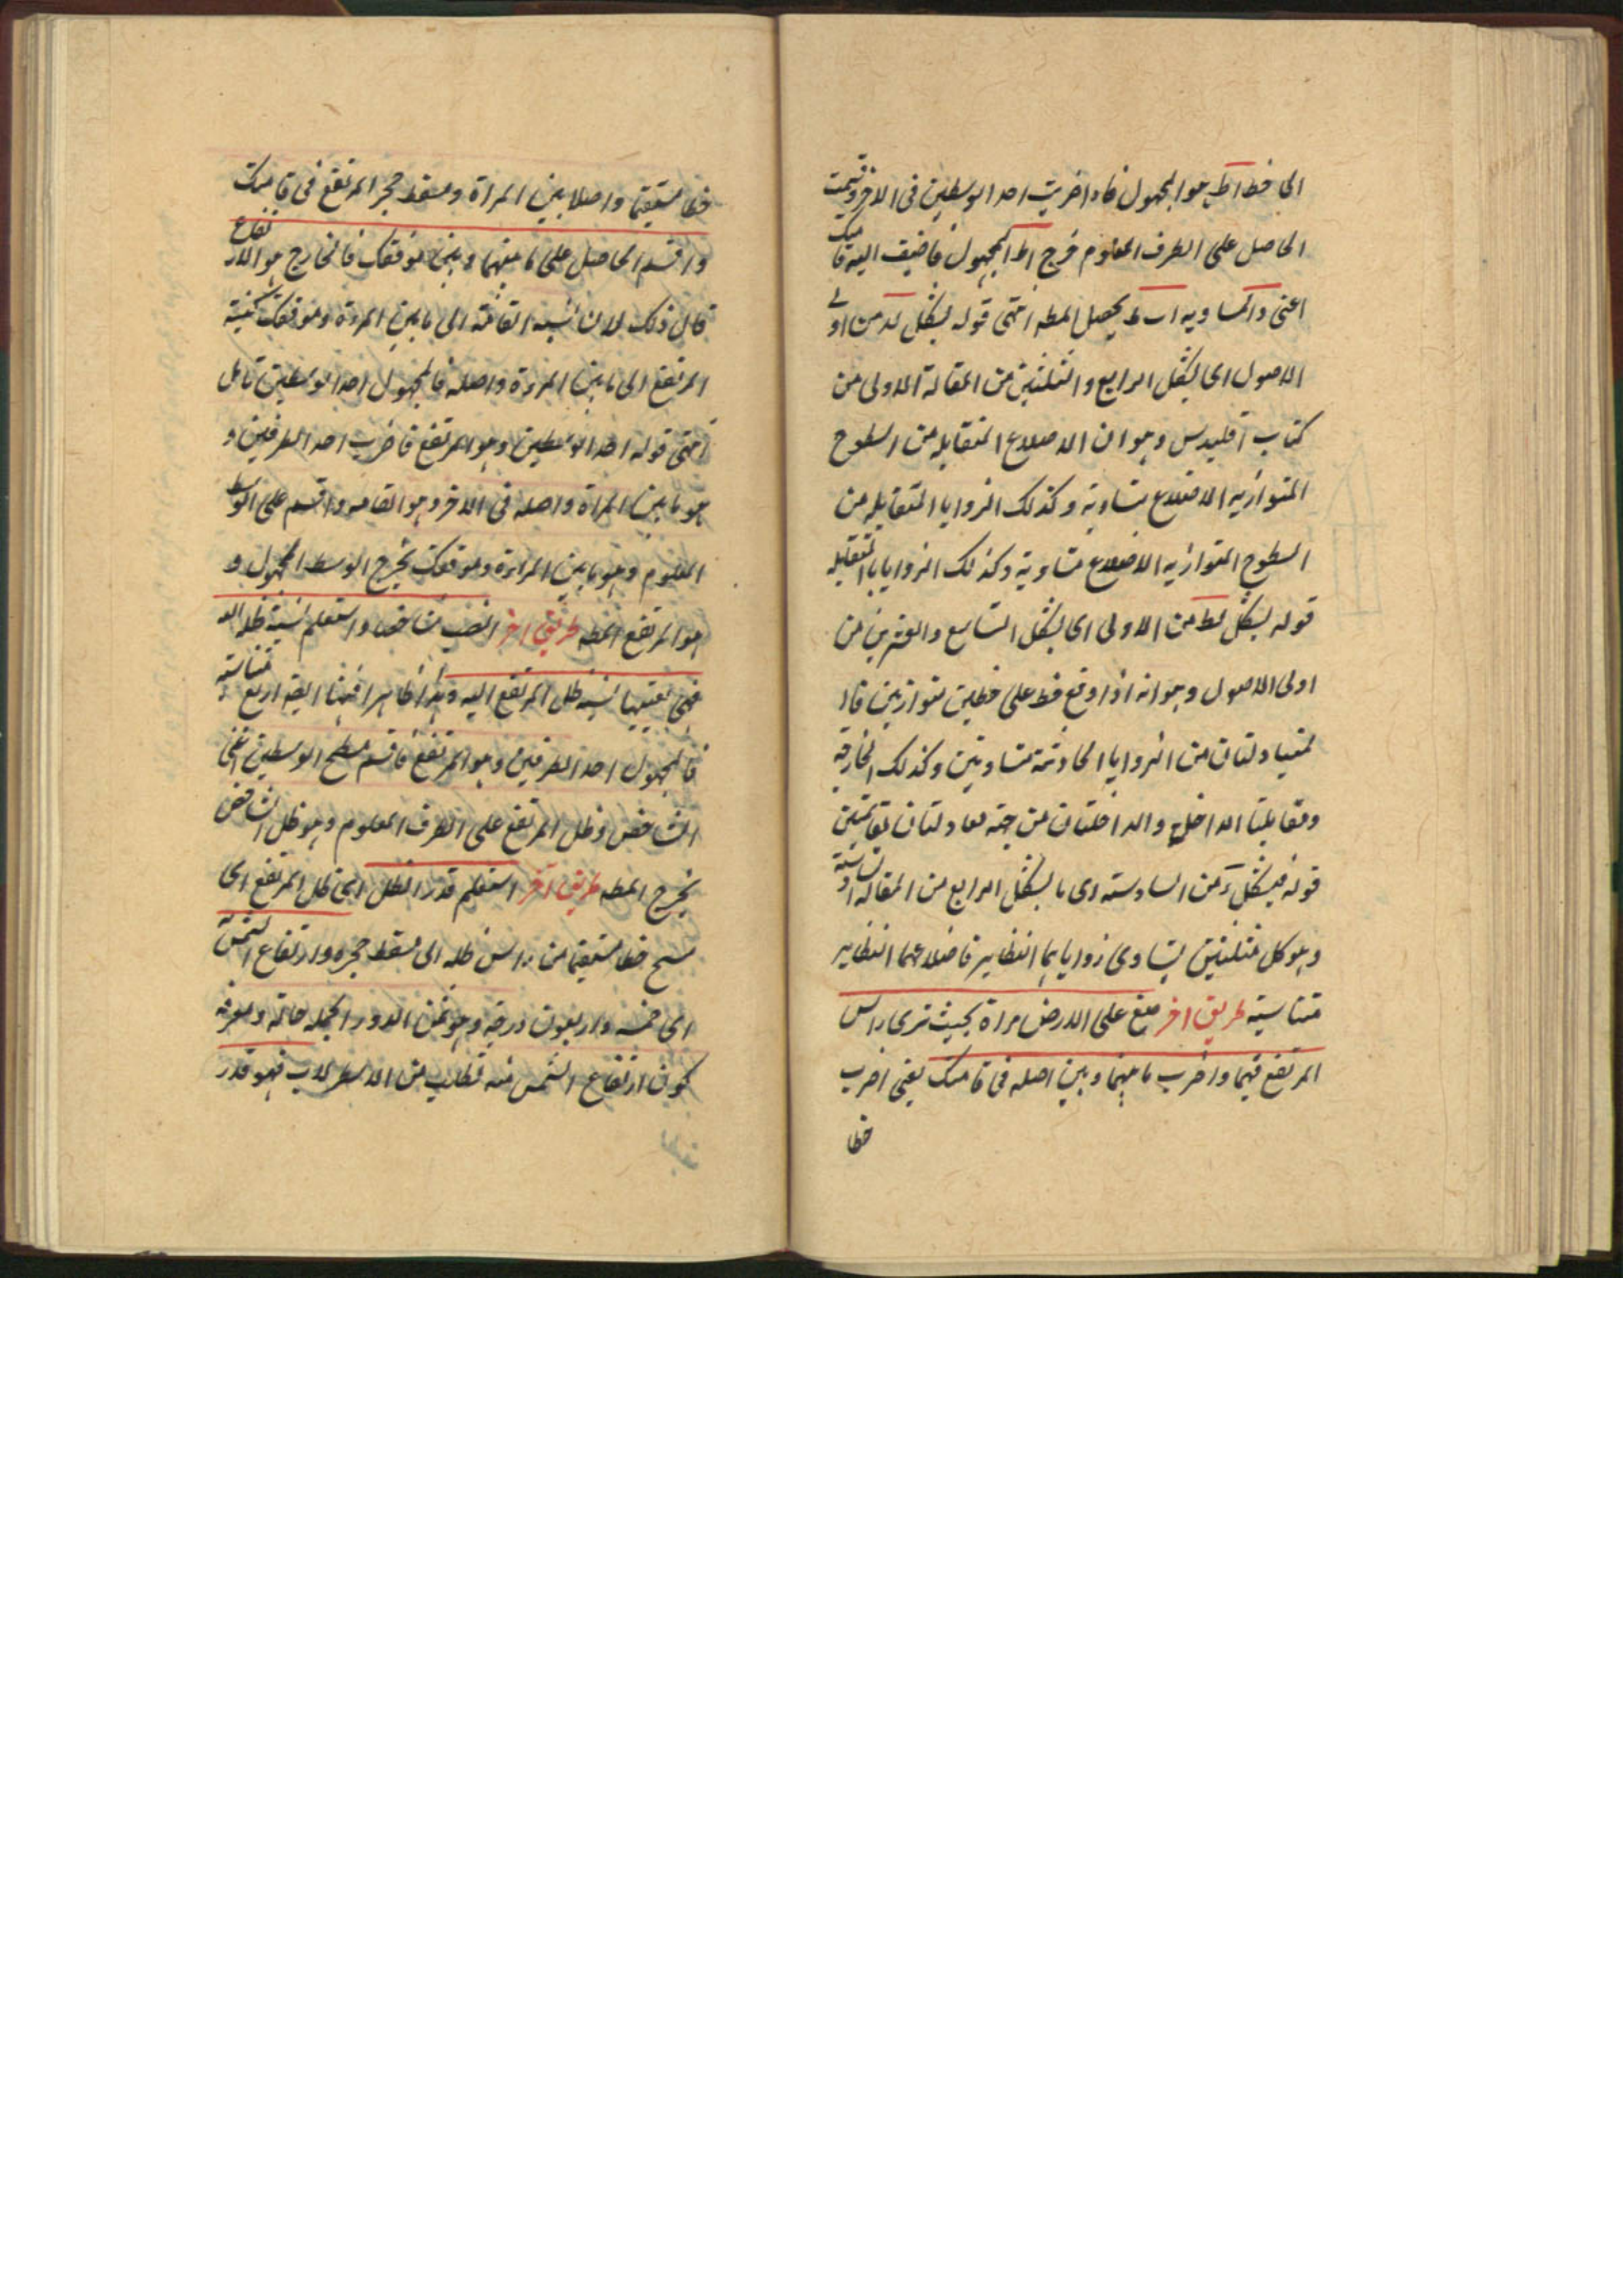 الى خط اط هو المجهول فاذا ضربت احد الوسطين فى الاخر وقسمت
الحاصل على الطرف المعلوم خرج اط المجهول فاضيف اليه قامتك
اعنى د ا المساويه ا ب ط يحصل المطه انتهى قوله بشكل لد من اولى
الاصول اى بشكل الرابع والثلثين من المقالة الاولى من
كتاب اقليدس وهو ان الاضلاع المتقابله من السطوح
المتوازيه الاضلاع متساوية وكذلك الزوايا المتقابله من
السطوح المتوازيه الاضلاع متساوية وكذلك الزوايا المتقابله
قوله بشكل لط من الاولى اى بشكل التاسع والعشرين من
اولى الاصول وهو انه اذا وقع خط على خطين متوازيين فان
لمتبادلتان من الزوايا الحادثة متساويتين وكذلك الخارجة
ومقابلتها الداخلة والداخلتان من جهة معادلتان لقائمتين
قوله فبشكل د من السادسة اى بالشكل الرابع من المقالة السادسة
وهو كل مثلثين يتساوى زواياهما النظاير فاضلاعهما النظاير
متناسبة طريق اخر ضع على الارض مراة بحيث ترى راس
المرتفع فيها واضرب ما بينها وبين اصله فى قامتك يعنى اضرب
خطا
خطا مستقيما واصلا بين المراة ومسقط حجر المرتفع فى قامتك
واقسم الحاصل على ما بينها وبين موقفك فالخارج هو الارتفاع
قال ذلك لان نسبة القامة الى ما بين المراة وموقفك كنسبة
المرتفع الى ما بين المراة واصله فالمجهول احد الوسطين تامل
انتهى قوله احد الوسطين وهو المرتفع فاضرب احد الطرفين و
هو ما بين المراة واصله فى الاخر وهو القامه واقسم على الوسط
المعلوم وهو ما بين المراة وموقفك يخرج الوسط المجهول و
هو المرتفع المطه طريق اخر انصب شاخصا واستعلم نسبة ظله اليه
فهى بعينها نسبة ظل المرتفع اليه وهذا ظاهر فهنا ايضا اربع متناسبة
فالمجهول احد الطرفين وهو المرتفع فاقسم مسطح الوسطين اعنى
الشاخص وظل المرتفع على الطرف المعلوم وهو ظل الشاخص
يخرج المطه طريق اخر استعلم قدر الظل اى ظل المرتفع اى
مسح خطا مستقيما من راس ظله الى مسقط حجره وارتفاع الشمس
اى خمسه واربعون درجة وهو ثمن الدور الجمله حالية ومعرفة
كون ارتفاع الشمس منه تطلب من الاسطرلاب فهو قدر